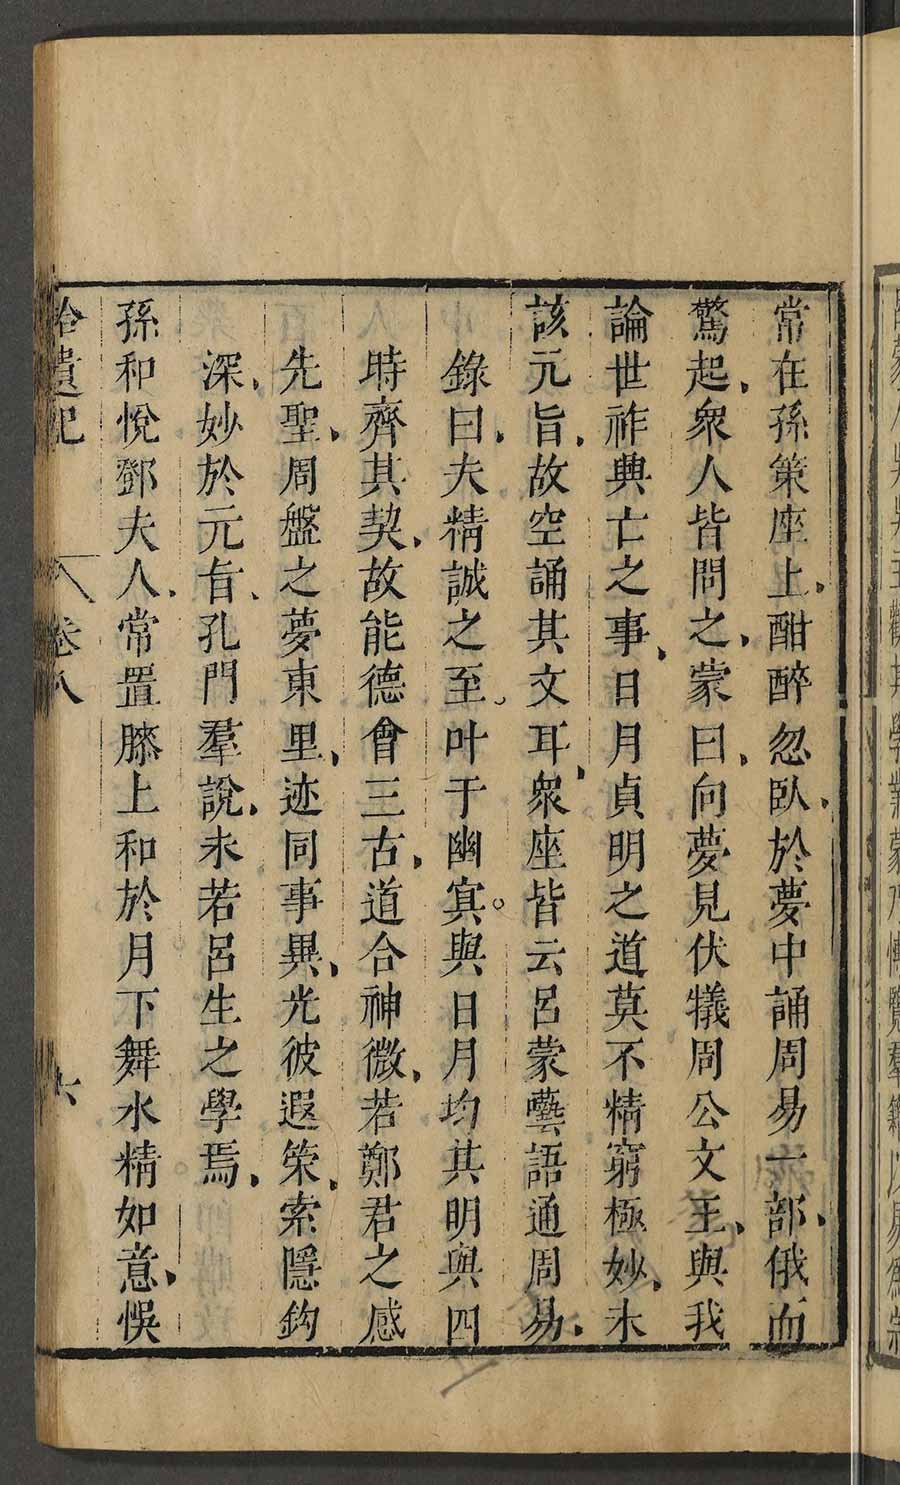 常在孫策座上酣醉忽臥於夢中誦周易一部俄而
驚起衆人皆問之蒙曰向夢見伏犧周公文王與我
論世祚興亡之事日月貞明之道莫不精窮極妙未
該元旨故空誦其文耳衆座皆云呂蒙囈語通周易
錄曰夫精誠之至叶于幽冥與日月均其明與四
時齊其契故能德會三古道合神微若鄭君之感
先聖周盤之夢東里迹同事異光彼遐策索隱鈎
深妙於元旨孔門羣說未若呂生之學焉
孫和悅鄧夫人常置膝上和於月下舞水精如意悞
拾遺記 卷八 六